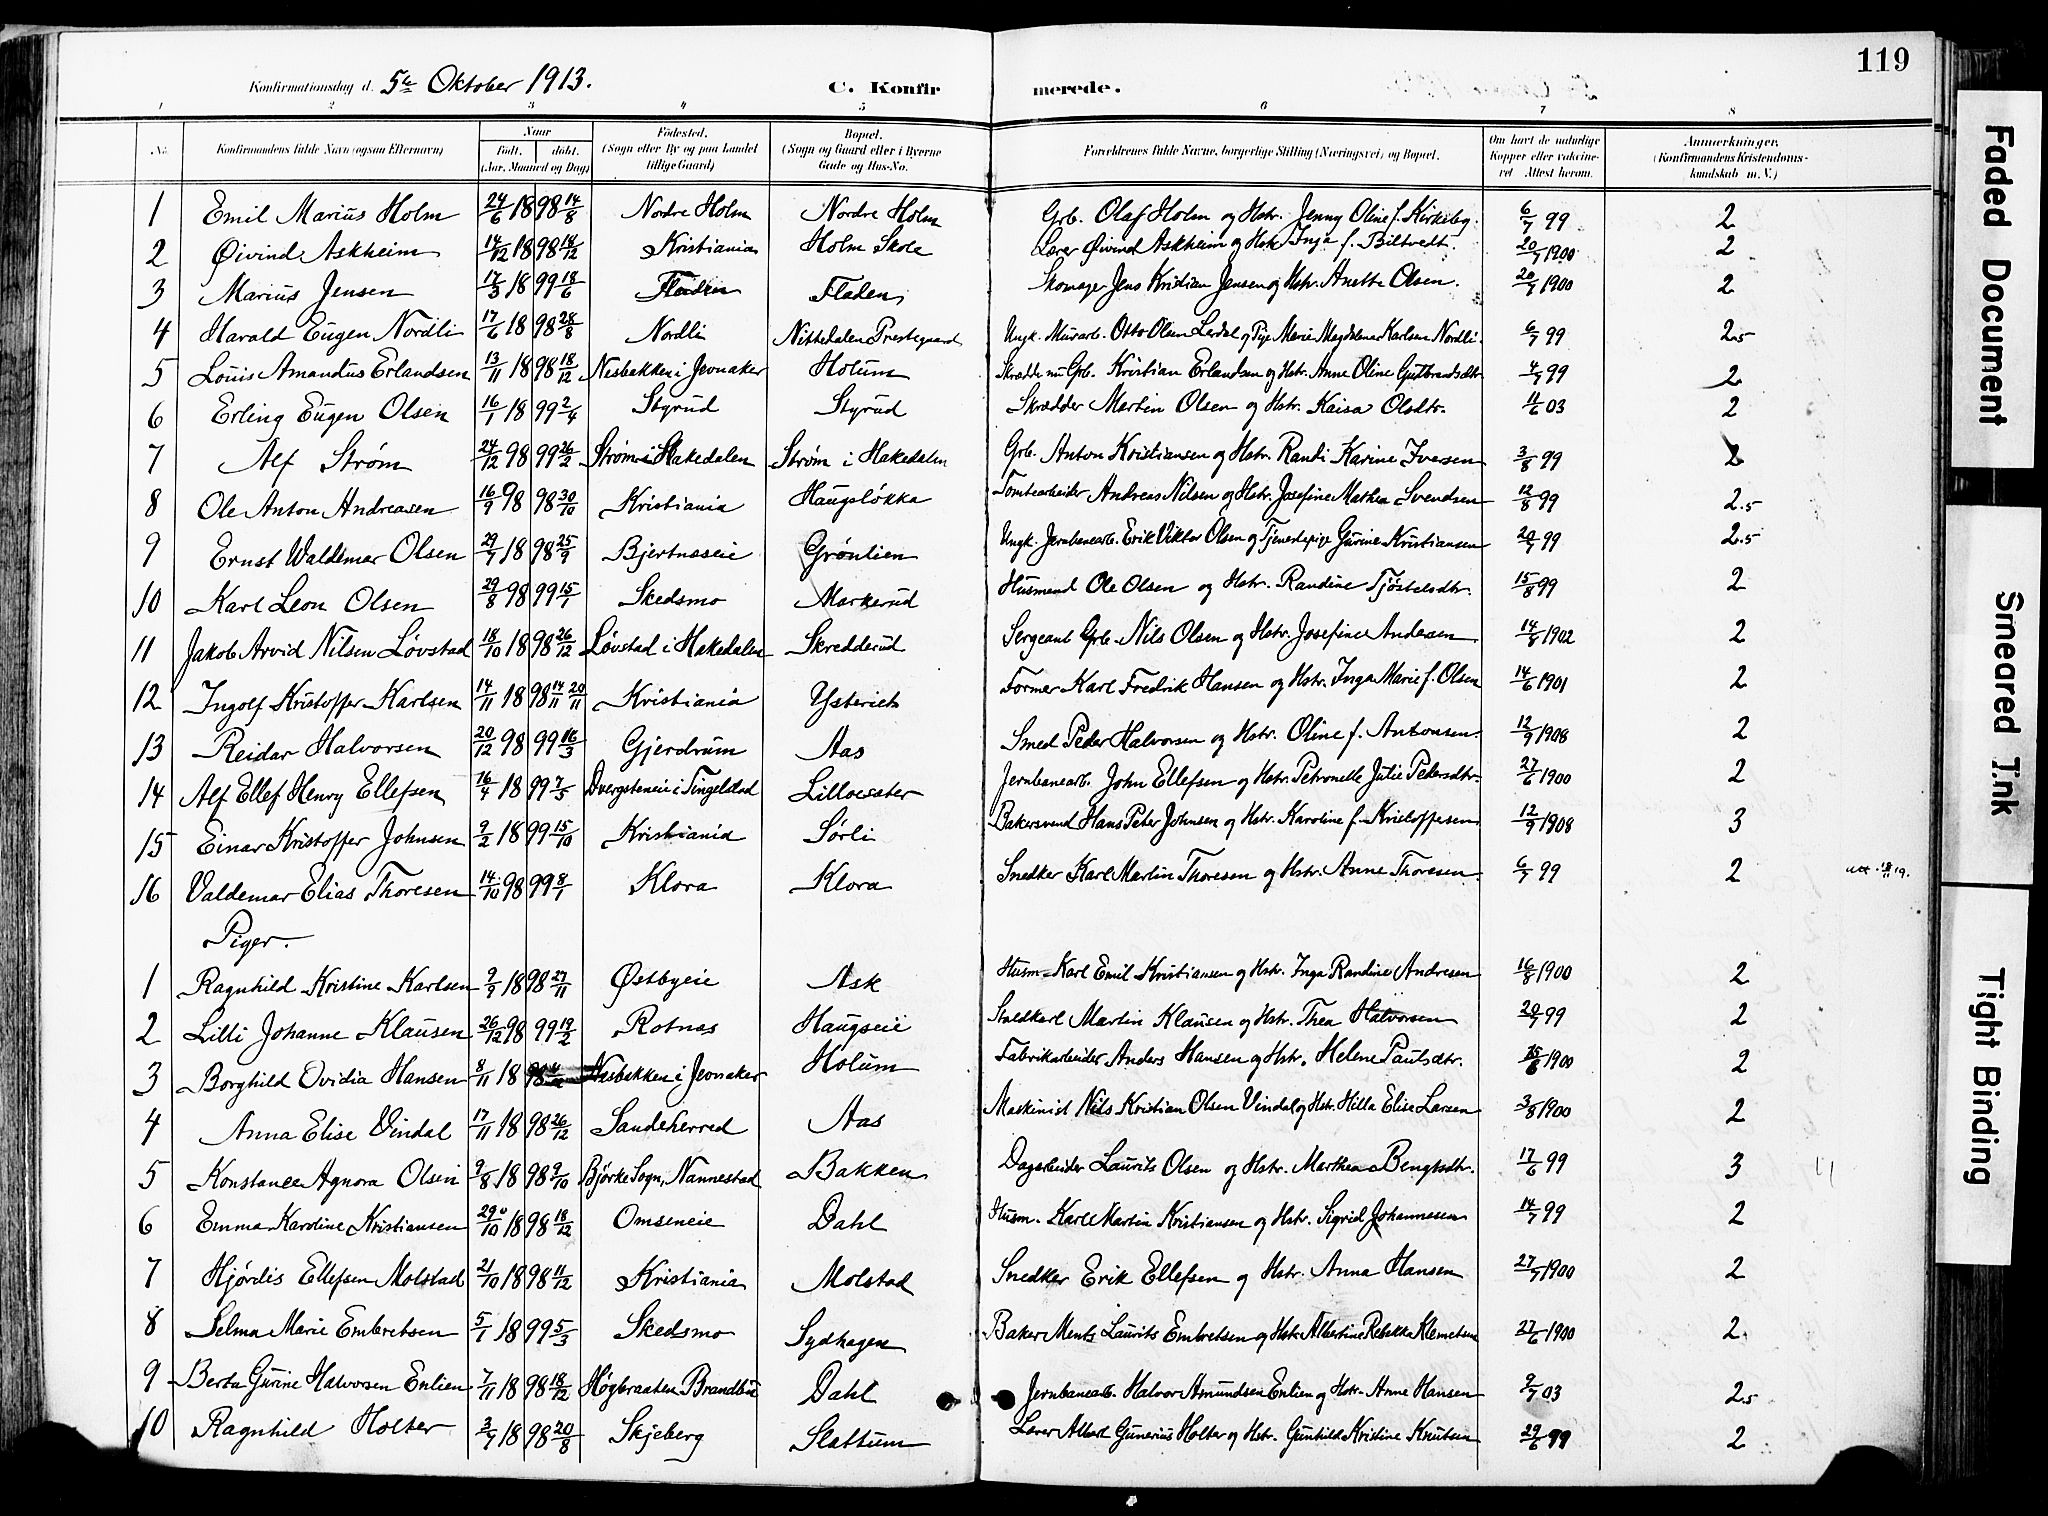 119
Konfirmationsdag d. 5te Oktober 1913. C. Konfir merede.
1 2 3 4 5 6 7 8
No. Konfirmandens fulde Navn (ogsaa Efternavn) Naar født. døbt. (Aar, Maaned og Dag) Fødested. (Sogn eller By og paa Landet tillige Gaard) Bopæl. (Sogn og Gaard eller i Byerne Gade og Hus-No. Forældrenes fulde Navne, borgerlige Stilling (Næringsvei) og Bopæl. Om havt de naturlige Kopper eller vakcineret Attest herom. Anmerkninger. (Konfirmandens Kristendomskundskab m. V.)
1 Emil Marius Holm 24/6 1898 14/8 Nordre Holm Nordre Holm Grb. Olaf Holm og Hstr. Jenny Oline f. Kirkeby. 6/7 99 2
2 Øivind Askheim 14/12 1898 18/12 Kristiania Holm Skole Lærer Øivind Askheim og Hstr. Inga f. Biltvedt. 20/7 1900 2
3 Marius Jensen 17/3 1899 18/6 Fladen Fladen Skomager Jens Kristian Jensen og Hstr. Anette Olsen. 20/7 1900 2
4 Harald Eugen Nordli 17/6 1898 28/8 Nordli Nittedalen Prestegaard Ungk. Murarb. Otto Olsen Lerdal og Pige Marie Magdalena Karlsen Nordli. 6/7 99 2.5
5 Louis Amandus Erlandsen 13/11 1898 18/12 Nesbakken i Jevnaker Holum Skrædd. nu Grb. Kristian Erlandsen og Hstr. Anne Oline Gutbrandsdtr 4/7 99 2
6 Erling Eugen Olsen 16/1 1899 2/4 Styrud Styrud Skrædder Martin Olsen og Hstr. Kaisa Olsdtr. 11/6 03 2
7 Alf Strøm 24/12 98 99 26/2 Strøm i Hakedalen Strøm i Hakedalen Grb. Anton Kristiansen og Hstr. Randi Karine Iversen 3/8 99 2
8 Ole Anton Andreasen 16/9 98 98 30/10 Kristiania Haugsløkka Tomtearbeider Andreas Nilsen og Hstr. Josefine Mathea Svendsen 12/8 99 2.5
9 Ernst Waldemar Olsen 29/7 1898 25/9 Bjertnæseie Grønlien Ungk. Jernbanearb. Erik Viktor Olsen og Tjenestepige Gurine Kristiansen 20/7 99 2.5
10 Karl Leon Olsen 29/8 98 99 15/1 Skedsmo Markerud Husmand Ole Olsen og Hstr. Randine Tjøstelsdtr. 15/8 99 2
11 Jakob Arvid Nilsen Løvstad 18/10 1898 26/12 Løvstad i Hakedalen Skredderud Sergeant Grb. Nils Olsen og Hstr. Josefine Andersen 14/8 1902 2
12 Ingolf Kristoffer Karlsen 14/11 1898 14/11 20/11 Kristiania Ysteriet Former Karl Fredrik Hansen og Hstr. Inga Marie f. Olsen 14/6 1901 2
13 Reidar Halvorsen 20/12 98 99 16/3 Gjerdrum Aas Smed Peder Halvorsen og Hstr. Oline f. Antonsen. 12/9 1908 2
14 Alf Ellef Henry Ellefsen 16/4 1899 7/5 Dvergsteneie i Tingelstad Lilloesæter Jernbanearb. John Ellefsen og Hstr. Petronelle Julie Pedersdtr 27/6 1900 2
15 Einar Kristoffer Johnsen 9/2 1899 15/10 Kristiania Sørli Bakersvend Hans Peter Johnsen og Hstr. Karoline f. Kristoffersen. 12/9 1908 3
16 Valdemar Elias Thoresen 14/10 98 99 8/1 Klora Klora Snedker Karl Martin Thoresen og Hstr. Anne Thoresen. 6/7 99 2 18/11 19.
Piger.
1 Ragnhild Kristine Karlsen 9/9 1898 27/11 Østbyeie Ask Husm. Karl Emil Kristiansen og Hstr. Inga Randine Andresen 16/8 1900 2
2 Lilli Johanne Klausen 26/12 98 99 19/2 Rotnæs Haugseie Staldkarl Martin Klausen og Hstr. Thea Halvorsen 20/7 99 2
3 Borghild Ovidia Hansen 8/11 18 98 Nesbakken i Jevnaker Holum Fabrikarbeider Anders Hansen og Hstr. Helene Paulsdtr. 15/6 1900 2
4 Anna Elise Vindal 17/11 1898 26/12 Sandeherred Aas Maskinist Nils Kristian Olsen Vindal og Hstr. Hilla Elise Larsen 3/8 1900 2
5 Konstance Agnora Olsen 9/8 1898 9/10 Bjørke Sogn, Nannestad Bakken Dagarbeider Laurits Olsen og Hstr. Marthea Bengtsdtr. 17/6 99 3
6 Emma Karoline Kristiansen 29/10 1898 18/12 Omseneie Dahl Husm. Karl Martin Kristiansen og Hstr. Sigrid Johannesen 14/7 99 2
7 Hjørdis Ellefsen Molstad 21/10 1898 11/12 Kristiania Molstad Snedker Erik Ellefsen og Hstr. Anna Hansen 27/7 1900 2
8 Selma Marie Embretsen 5/1 1899 5/3 Skedsmo Sydhagen Baker Ments Laurits Embretsen og Hstr. Albertine Rebekka Klemetsen 27/6 1900 2.
9 Berta Gurine Halvorsen Enlien 7/11 1898 18/12 Høgbraaten, Brandbu Dahl Jernbanearb. Halvor Amundsen Enlien og Hstr. Anne Hansen 9/7 03 2.5
10 Ragnhild Holter 3/7 1898 20/8 Skjeberg Slattum Lærer Albert Gunerius Holter og Hstr. Gunhild Kristine Knutsen 29/6 99 2
Faded Document
Smeared Ink
Tight Binding